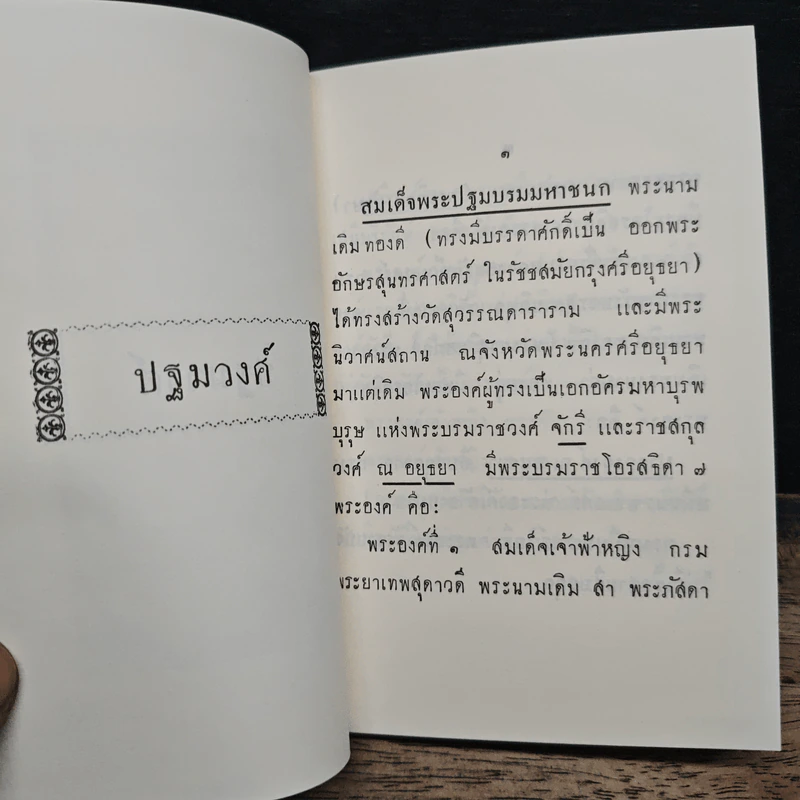 ปฐมวงศ์
๑
สมเด็จพระปฐมบรมมหาชนก พระนาม
เดิม ทองดี (ทรงมีบรรดาศักดิ์เป็น ออกพระ
อักษรสุนทรศาสตร์ ในรัชชสมัยกรุงศรีอยุธยา)
ได้ทรงสร้างวัดสุวรรณดาราราม และมีพระ
นิวาศน์สถาน ณจังหวัดพระนครศรีอยุธยา
มาแต่เดิม พระองค์ผู้ทรงเป็นเอกอัครมหาบุรพ
บุรุษ แห่งพระบรมราชวงศ์ จักรี และราชสกุล
วงศ์ ณ อยุธยา มีพระบรมราชโอรสธิดา ๗
พระองค์ คือ:
พระองค์ที่ ๑ สมเด็จเจ้าฟ้าหญิง กรม
พระยาเทพสุดาวดี พระนามเดิม สา พระภัสดา